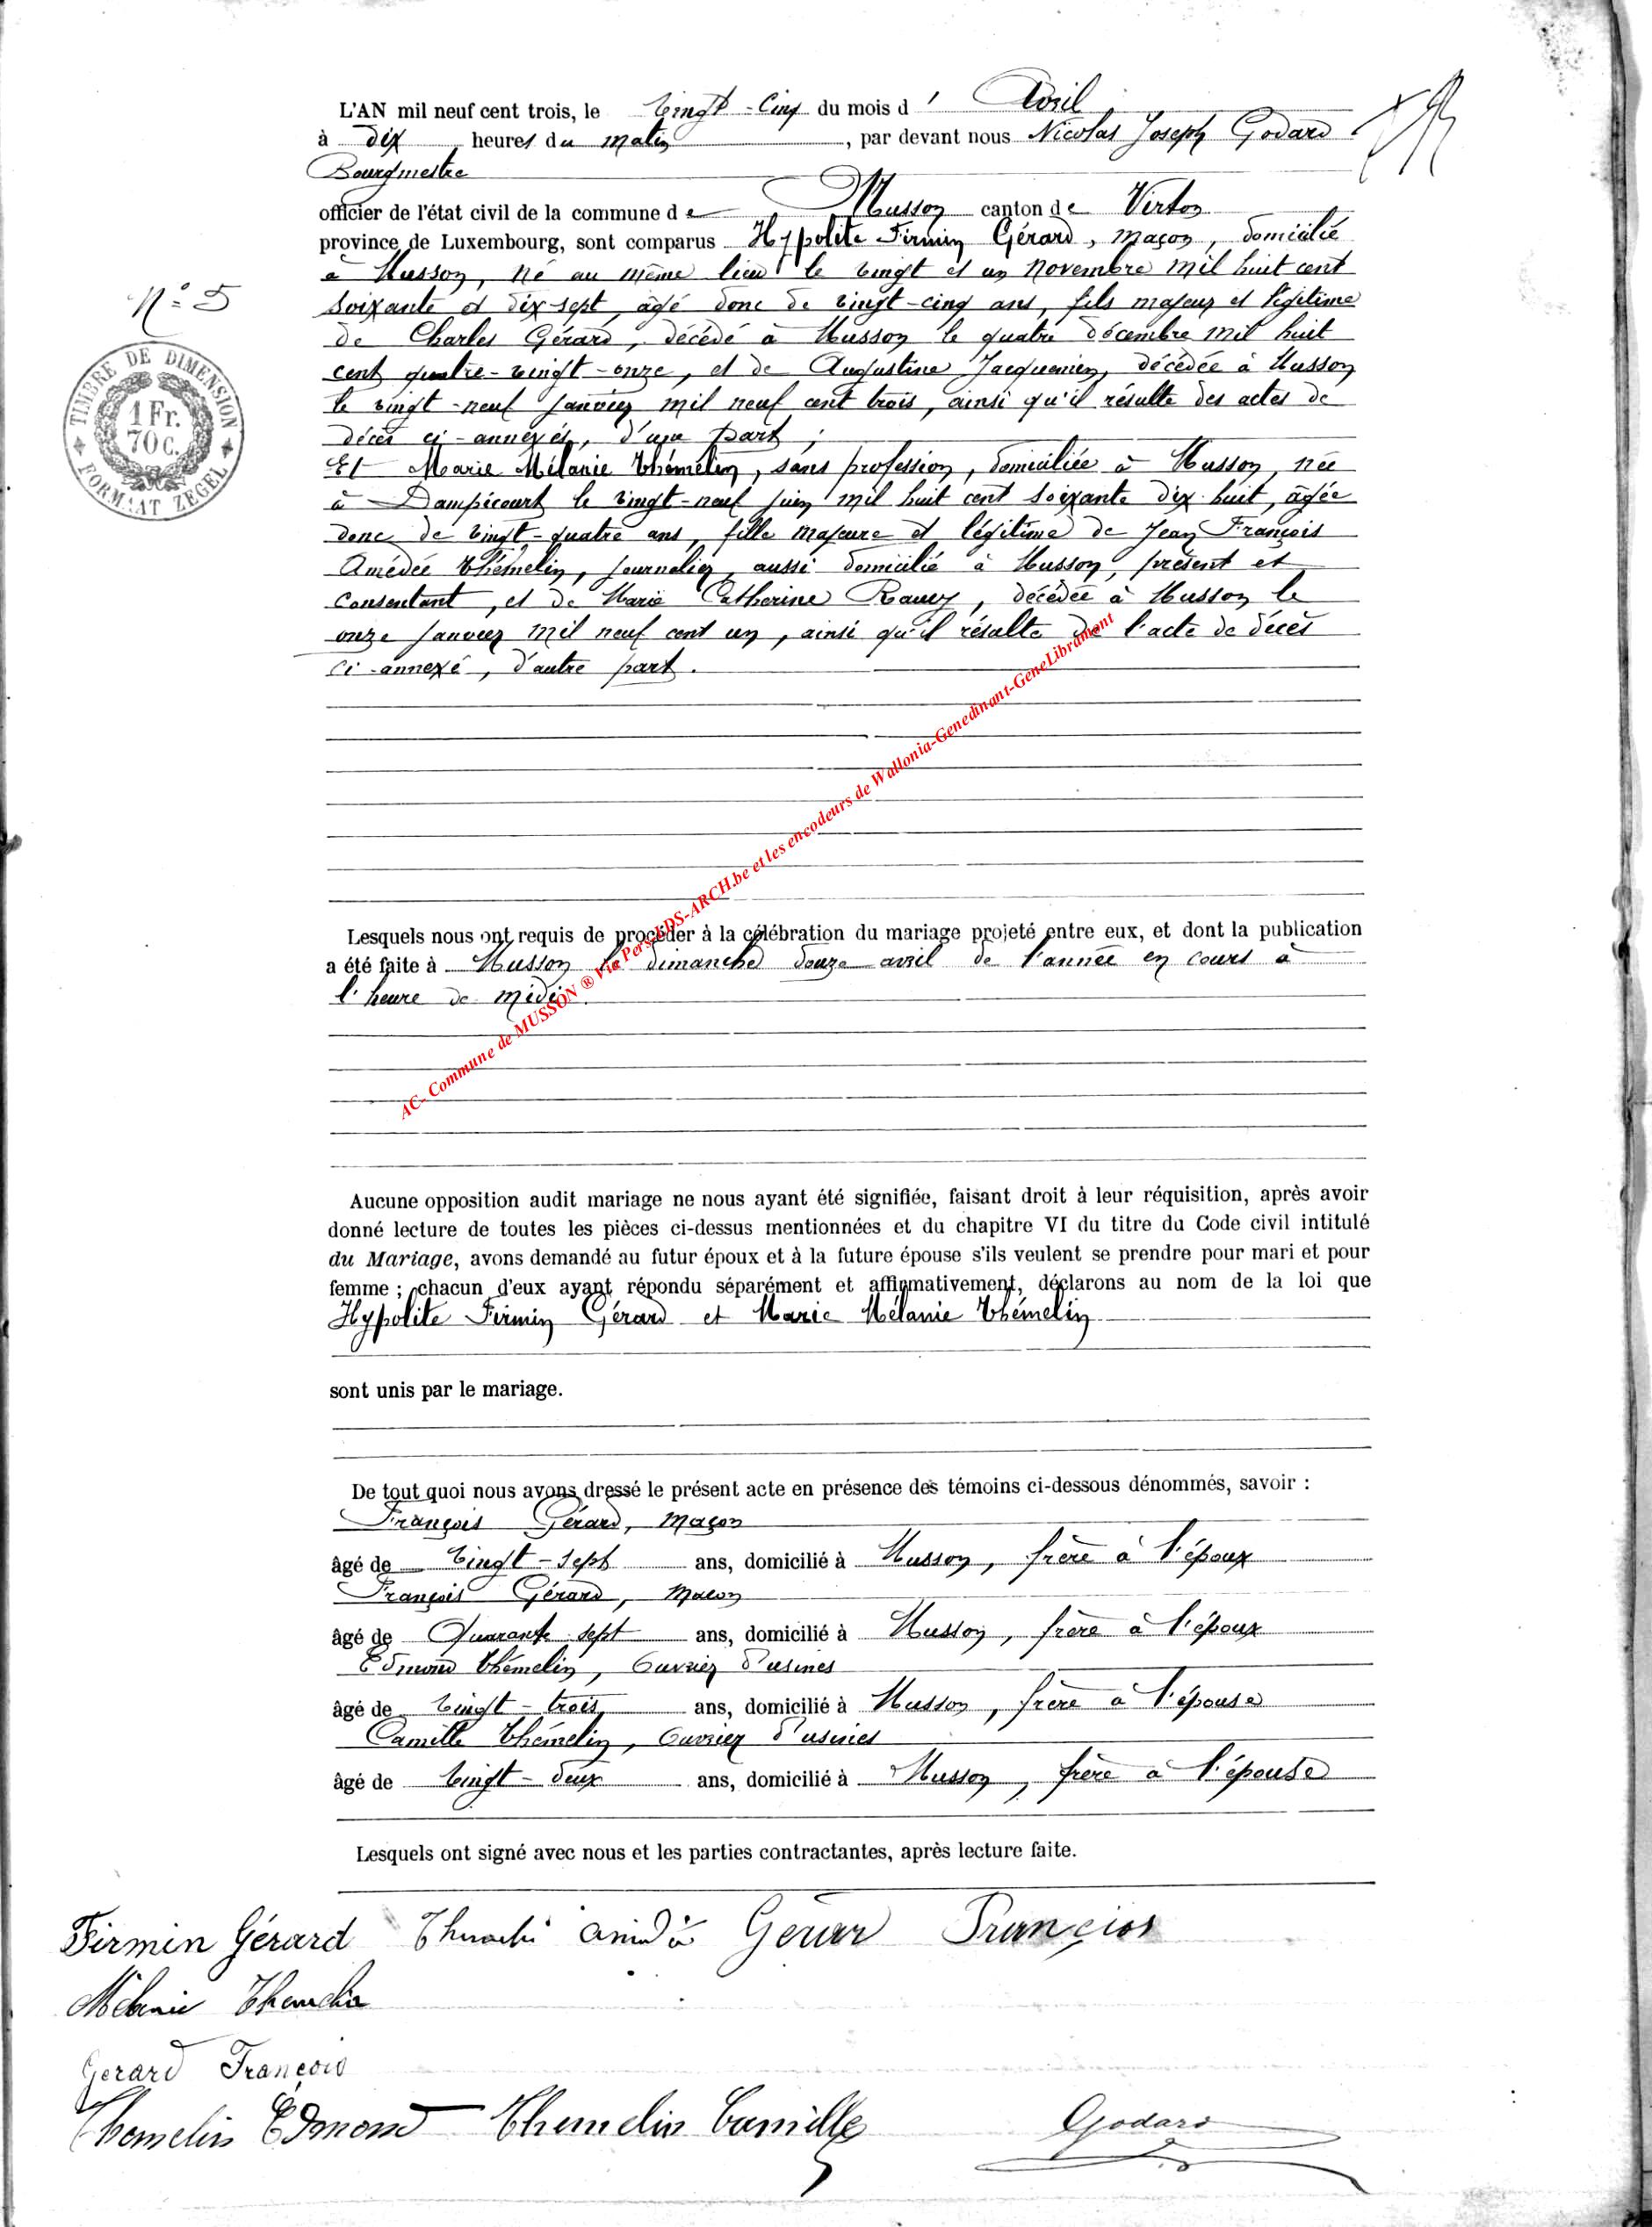 L'AN mil neuf cent trois, le vingt-cinq du mois d'Avril,
à dix heures du matin, par devant nous Nicolas Joseph Godard
Bourgmestre
officier de l'état civil de la commune de Musson canton de Virton
province de Luxembourg, sont comparus Hypolite Firmin Gérard, maçon, domicilié
à Musson, né au même lieu le vingt et un novembre mil huit cent
soixante et dix-sept, âgé donc de vingt-cinq ans, fils majeur et légitime
de Charles Gérard, décédé à Musson le quatre décembre mil huit
cent quatre-vingt-onze, et de Augustine Jacquemin, décédée à Musson
le vingt-neuf janvier mil neuf cent trois, ainsi qu'il résulte des actes de
décès ci-annexés, d'une part;
Et Marie Mélanie Thémelin, sans profession, domiciliée à Musson, née
à Dampicourt le vingt-neuf juin mil huit cent soixante dix-huit, âgée
donc de vingt-quatre ans, fille majeure et légitime de Jean François
Amédée Thémelin, journalier, aussi domicilié à Musson, présent et
consentant, et de Marie Catherine Raucy, décédée à Musson le
onze janvier mil neuf cent un, ainsi qu'il résulte de l'acte de décès
ci-annexé, d'autre part.
N° 5
TIMBRE DE DIMENSION
1 Fr.
70 C.
FORMAAT ZEGEL
AC- Commune de MUSSON ® Via Pers-EDS-ARCH.be et les encodeurs de Wallonia-Genedinant-GeneLibramont
Lesquels nous ont requis de procéder à la célébration du mariage projeté entre eux, et dont la publication
a été faite à Musson le dimanche douze avril de l'année en cours à
l'heure de midi.
Aucune opposition audit mariage ne nous ayant été signifiée, faisant droit à leur réquisition, après avoir
donné lecture de toutes les pièces ci-dessus mentionnées et du chapitre VI du titre du Code civil intitulé
du Mariage, avons demandé au futur époux et à la future épouse s'ils veulent se prendre pour mari et pour
femme ; chacun d'eux ayant répondu séparément et affirmativement, déclarons au nom de la loi que
Hypolite Firmin Gérard et Marie Mélanie Thémelin
sont unis par le mariage.
De tout quoi nous avons dressé le présent acte en présence des témoins ci-dessous dénommés, savoir :
François Gérard, maçon
âgé de vingt-sept ans, domicilié à Musson, frère à l'époux
François Gérard, maçon
âgé de Quarante sept ans, domicilié à Musson, frère à l'époux
Edmond Thémelin, ouvrier d'usines
âgé de vingt-trois ans, domicilié à Musson, frère à l'épouse
Camille Thémelin, ouvrier d'usines
âgé de vingt-deux ans, domicilié à Musson, frère à l'épouse
Lesquels ont signé avec nous et les parties contractantes, après lecture faite.
Firmin Gérard
Mélanie Themelin
Gerard François
Themelin Edmond Themelin Camille Godard